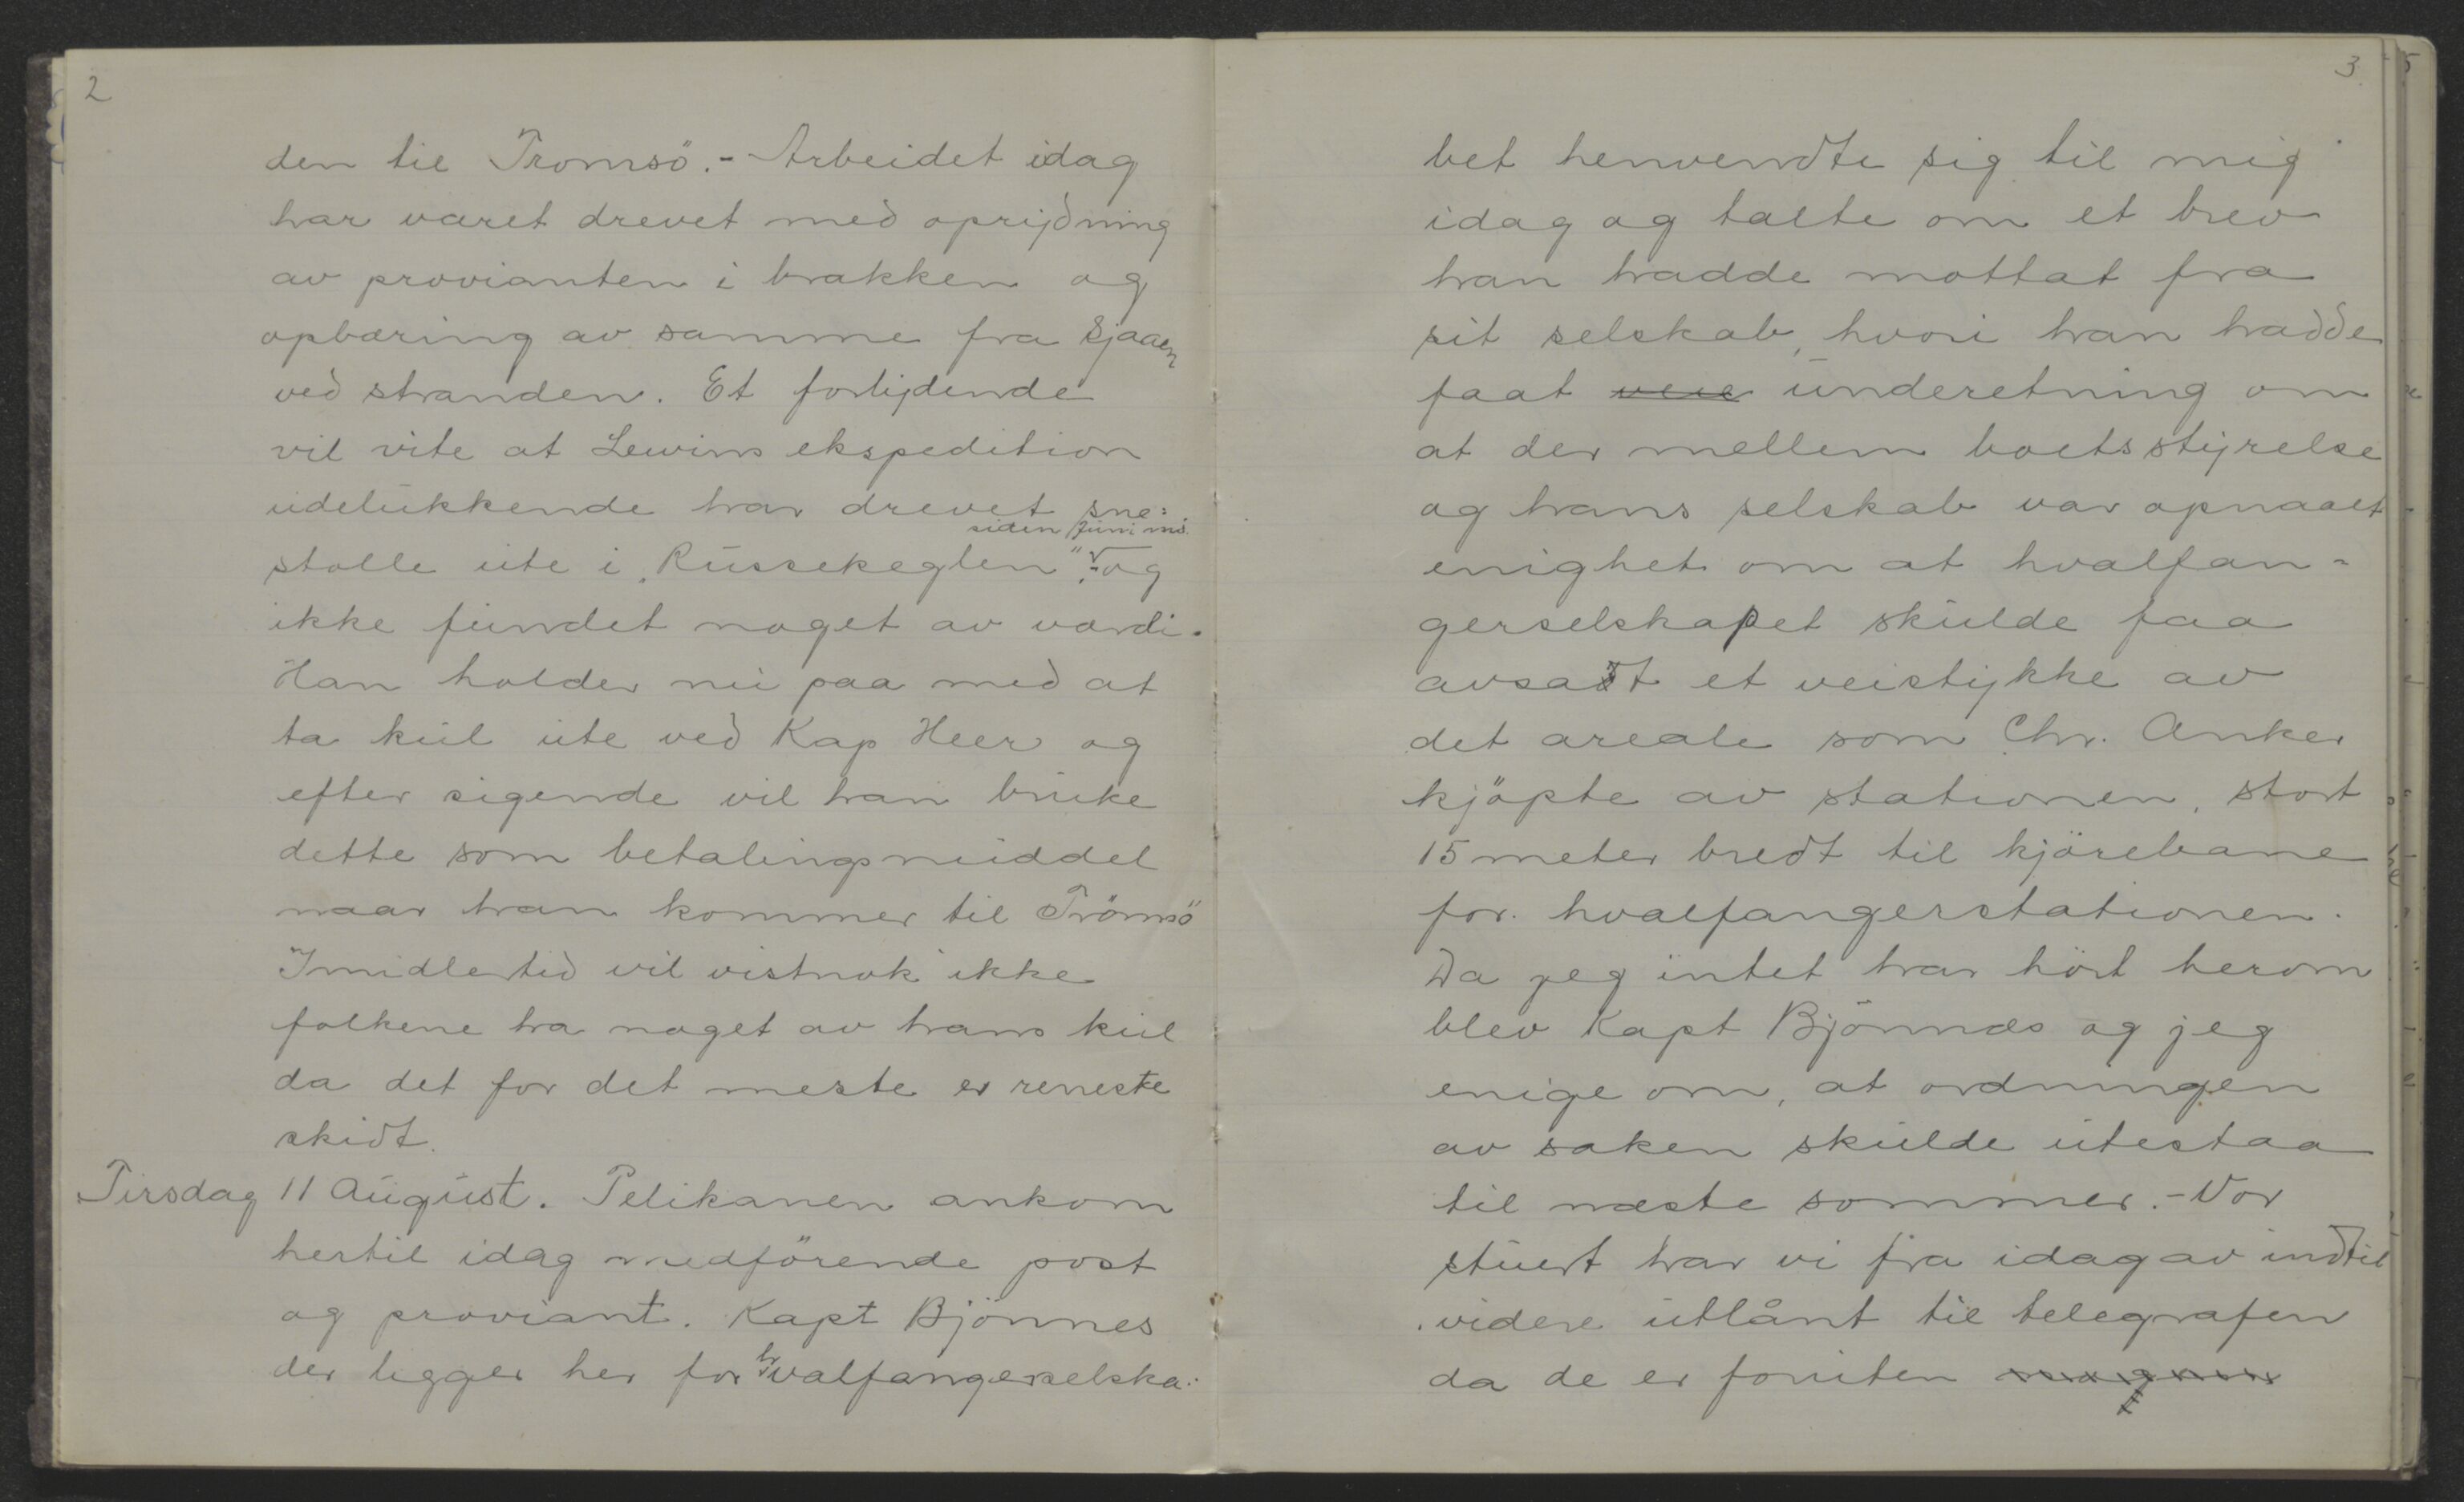 2
den til Tromsö. - Arbeidet idag
har været drevet med oprydning
av provianten i brakken og
opbæring av samme fra Sjaaen
ved stranden. Et forlydende
vil vite at Lewins ekspedition
udelukkende har drevet sne=
siden Juni md.
stolle ute i "Russekeglen", og
ikke fundet noget av værdi.
Han holder nu paa med at
ta kul ute ved Kap Heer og
efter sigende vil han bruke
dette som betalingsmiddel
naar han kommer til Trömsö
Imidlertid vil vistnok ikke
folkene ha noget av hans kul
da det for det meste er reneste
skidt.
Tirsdag 11 August. Pelikanen ankom
hertil idag medförende post
og proviant. Kapt Bjönnes
der ligger her for hvalfangerselska=
3
bet henvendte sig til mig
idag og talte om et brev
han hadde mottat fra
sit selskab, hvori han hadde
faat veie underetning om
at der mellem boets styrelse
og hans selskab var opnaaet
enighet om at hvalfan=
gerselskapet skulde faa
avsadt et veistykke av
det areale som Chr. Anker
kjöpte av stationen, stort
15 meter bredt til kjörebane
for hvalfangerstationen.
Da jeg intet har hört herom
blev Kapt Bjönnæs og jeg
enige om, at ordningen
av saken skulde utestaa
til næste sommer. - Vor
stuert har vi fra idag av indtil
videre utlånt til telegrafen
da de er foruten